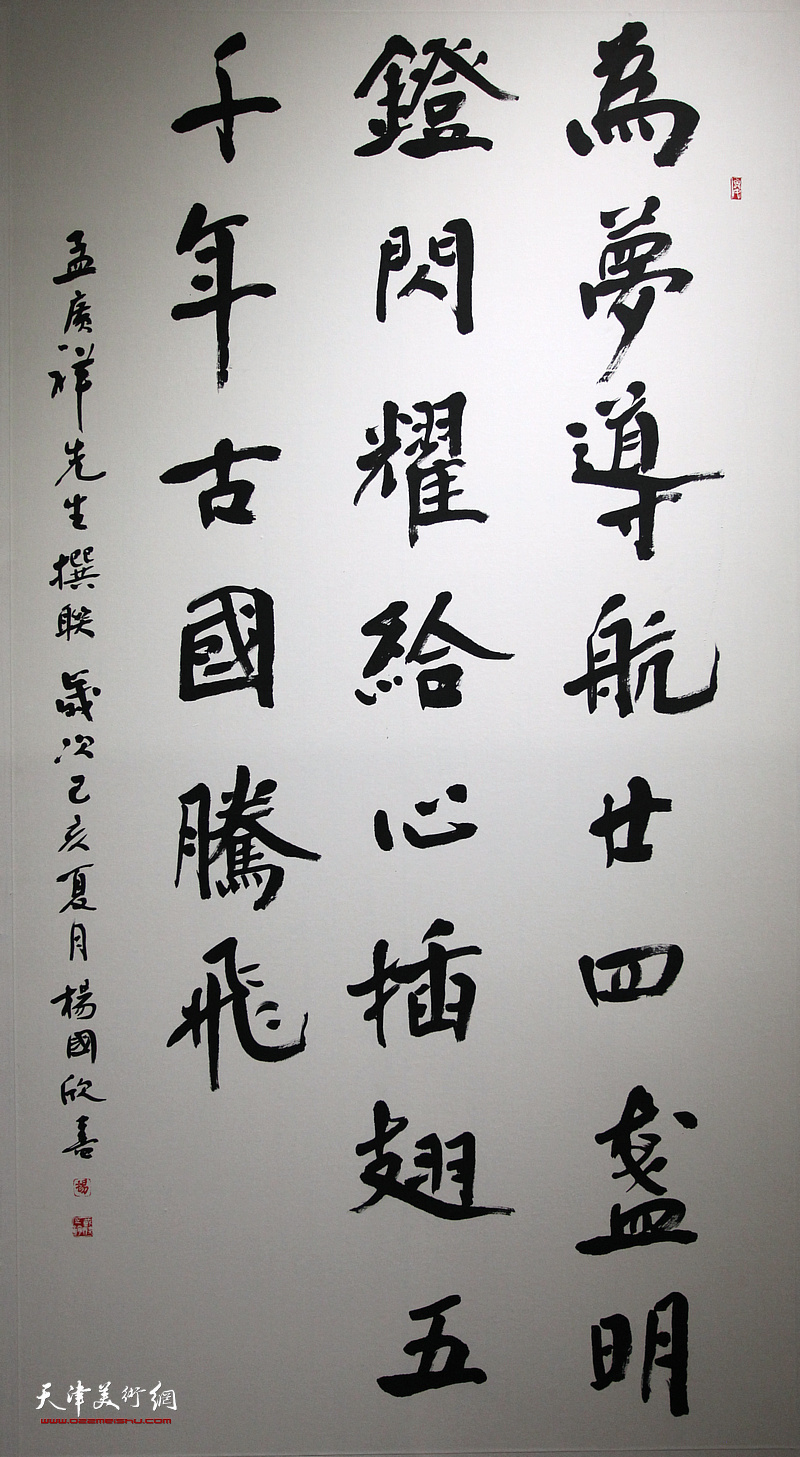 為夢導航廿四盞明
鐙閃耀給心插翅五
千年古國騰飛
孟廣祥先生撰聯 歲次己亥夏月 楊國欣書
天津美術網